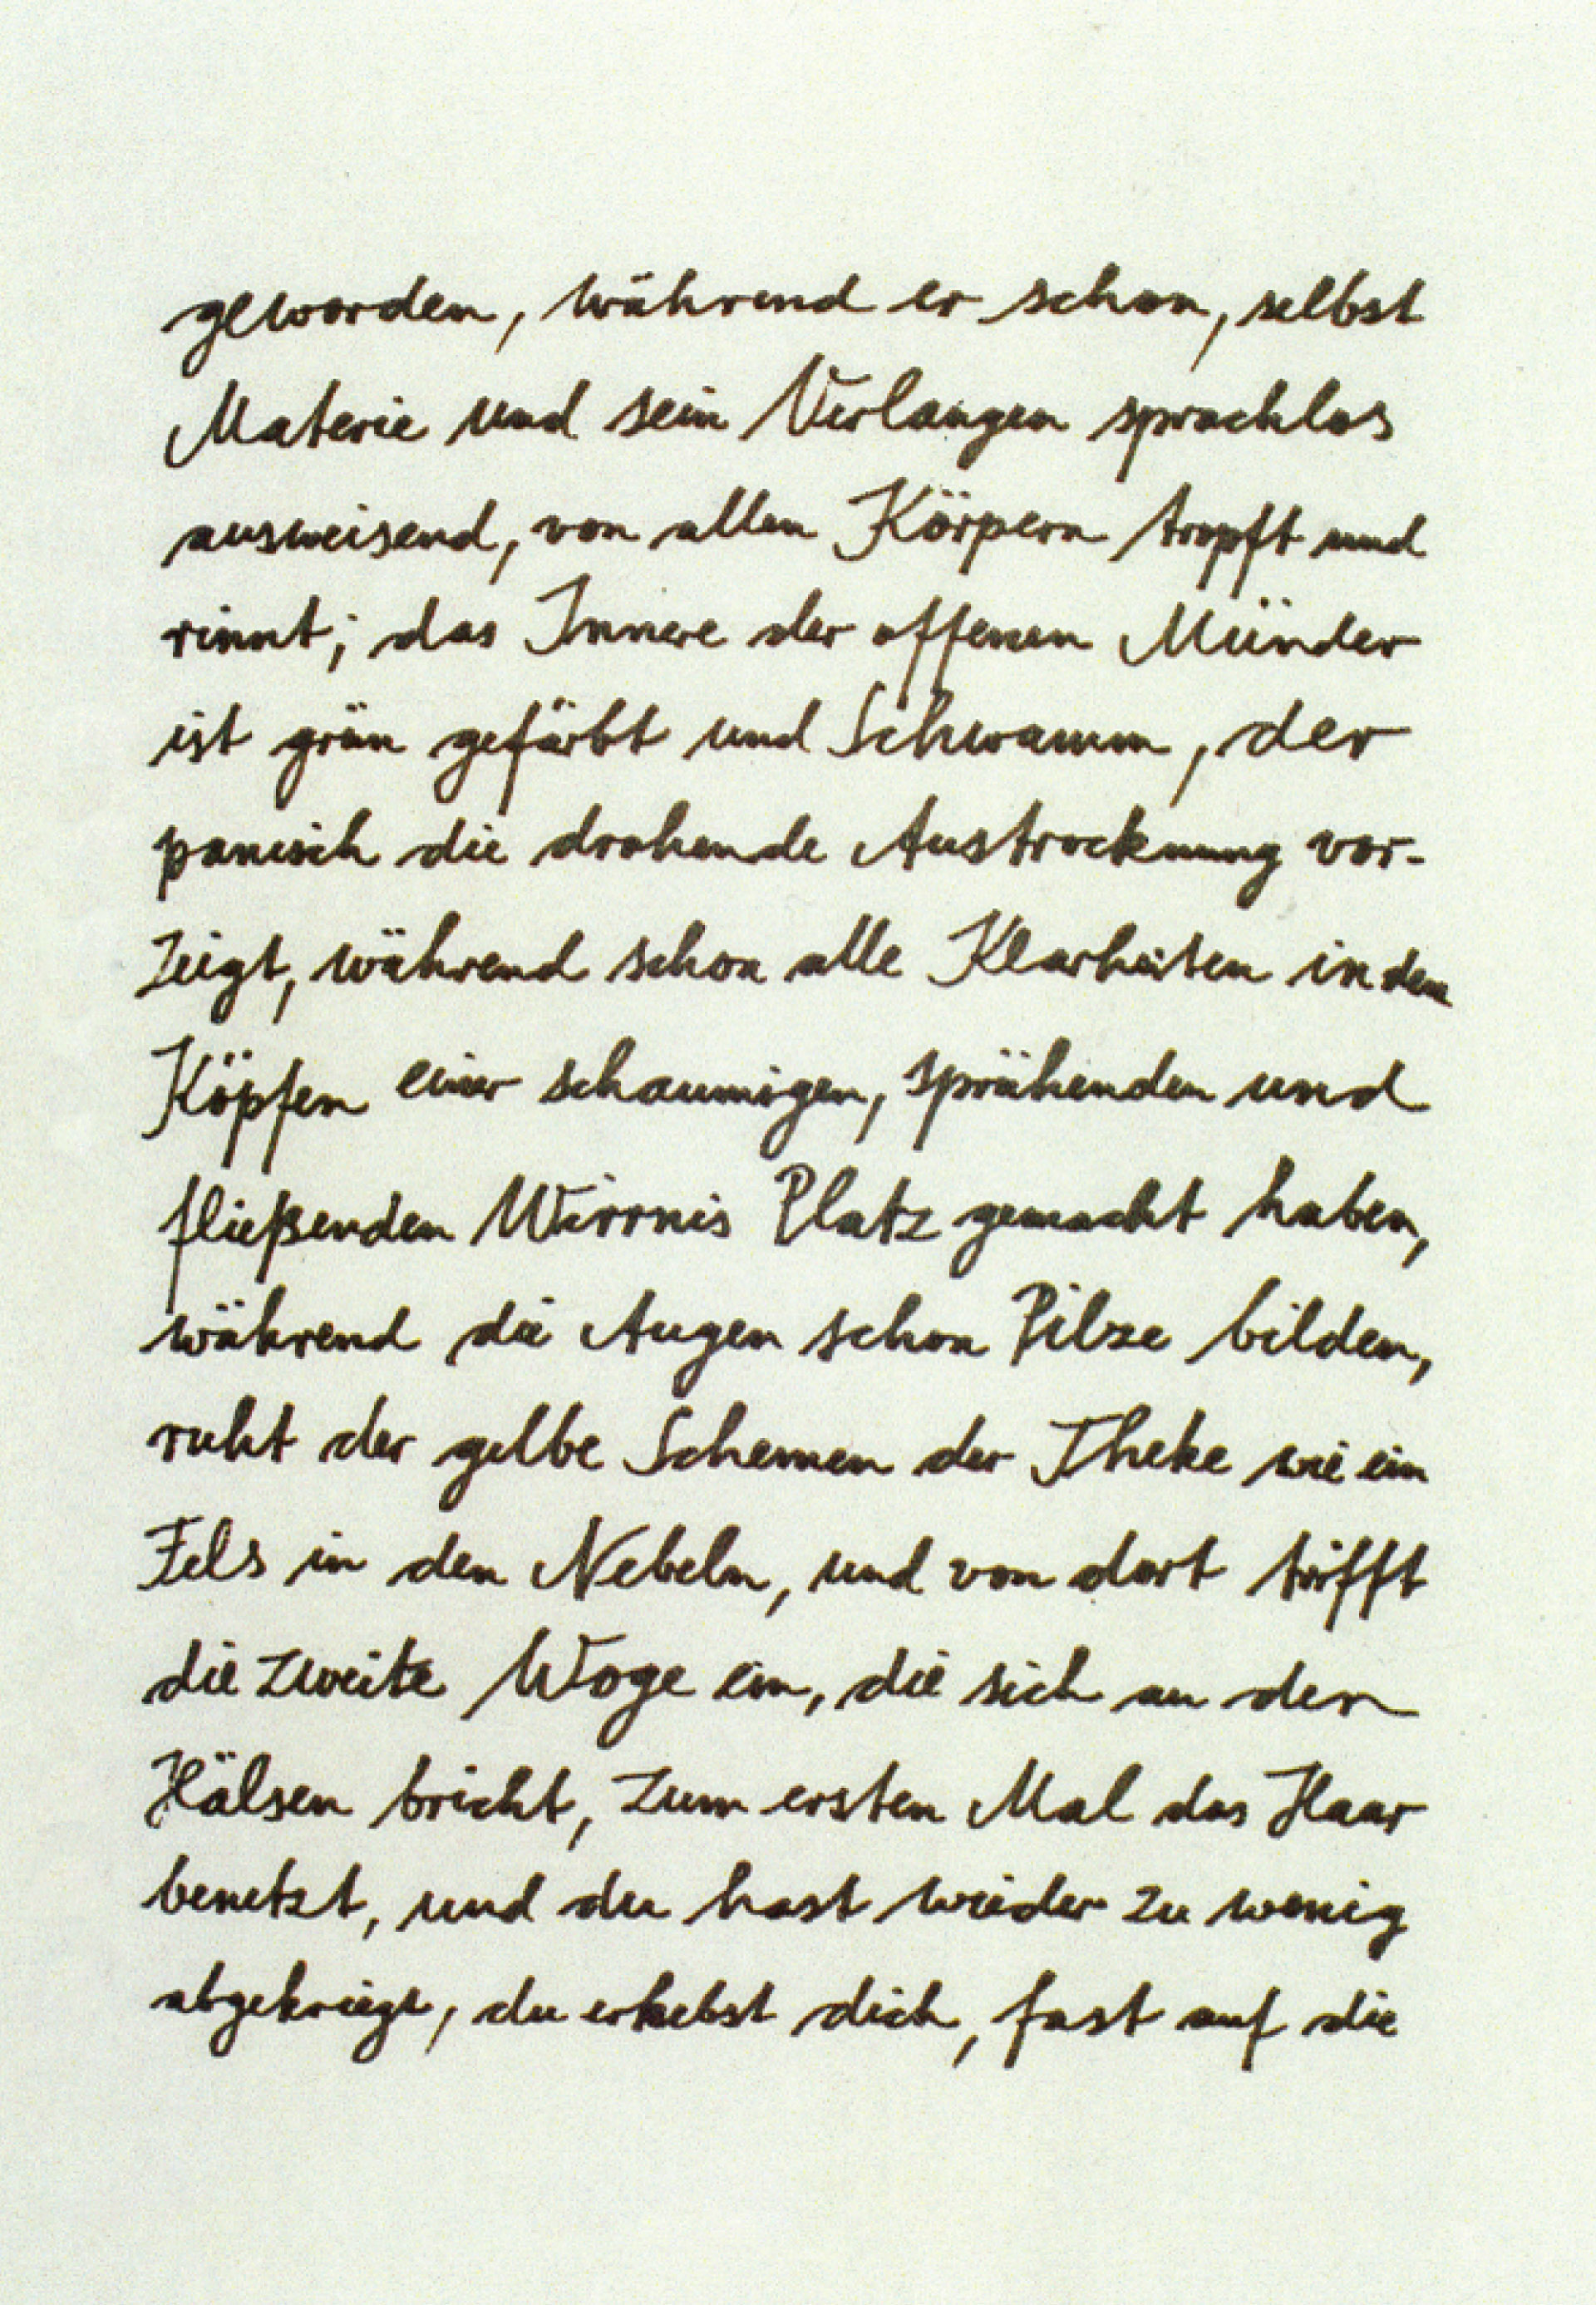 geworden, während er schon, selbst
Materie und sein Verlangen sprachlos
ausweisend, von allen Körpern tropft und
rinnt; das Innere der offenen Münder
ist grün gefärbt und Schwamm, der
panisch die drohende Austrocknung vor-
zeigt, während schon alle Klarheiten in den
Köpfen einer schaumigen, sprühenden und
fließenden Wirrnis Platz gemacht haben,
während die Augen schon Pilze bilden,
ruht der gelbe Schemen der Theke wie ein
Fels in den Nebeln, und von dort trifft
die zweite Woge ein, die sich an den
Hälsen bricht, zum ersten Mal das Haar
benetzt, und du hast wieder zu wenig
abgekriegt, du erhebst dich, fast auf die